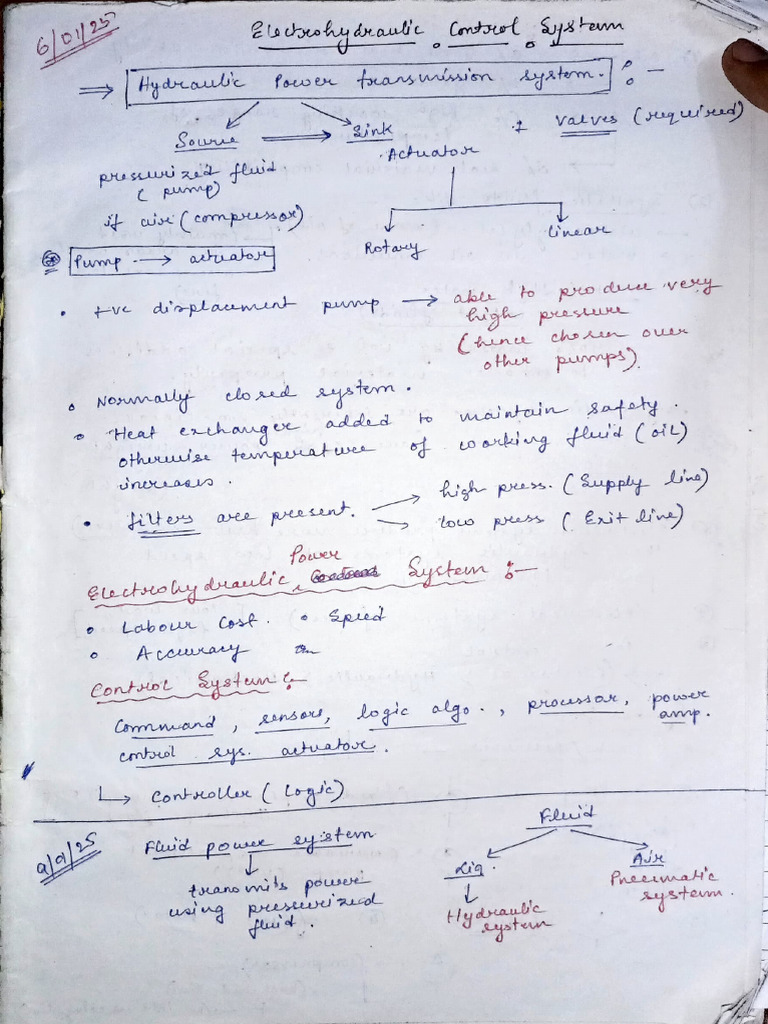 6/01/25
Electrohydraulic Control System
⇒ Hydraulic Power transmission system. :-
Source ⇒ Sink + valves (required)
Actuator
pressurized fluid
(pump)
if air (compressor)
Rotary Linear
Pump → actuator
• +ve displacement pump → able to produce very
high pressure
(hence chosen over
other pumps).
• Normally closed system.
• Heat exchanger added to maintain safety.
otherwise temperature of working fluid (oil)
increases.
• filters are present. → high press. (Supply line)
→ low press (Exit line)
Electrohydraulic Power System :-
• Labour Cost. • Speed
• Accuracy
Control System :-
Command, sensors, logic algo., processor, power
amp.
control sys. actuator.
↳ Controller (Logic)
9/01/25
Fluid power system
↓
transmits power
using pressurized
fluid.
Fluid
Liq. Air
↓ Pneumatic
system.
Hydraulic
system